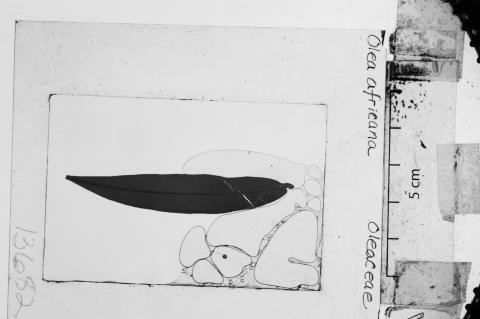 Olea africana
Oleaceae
5 cm
13682